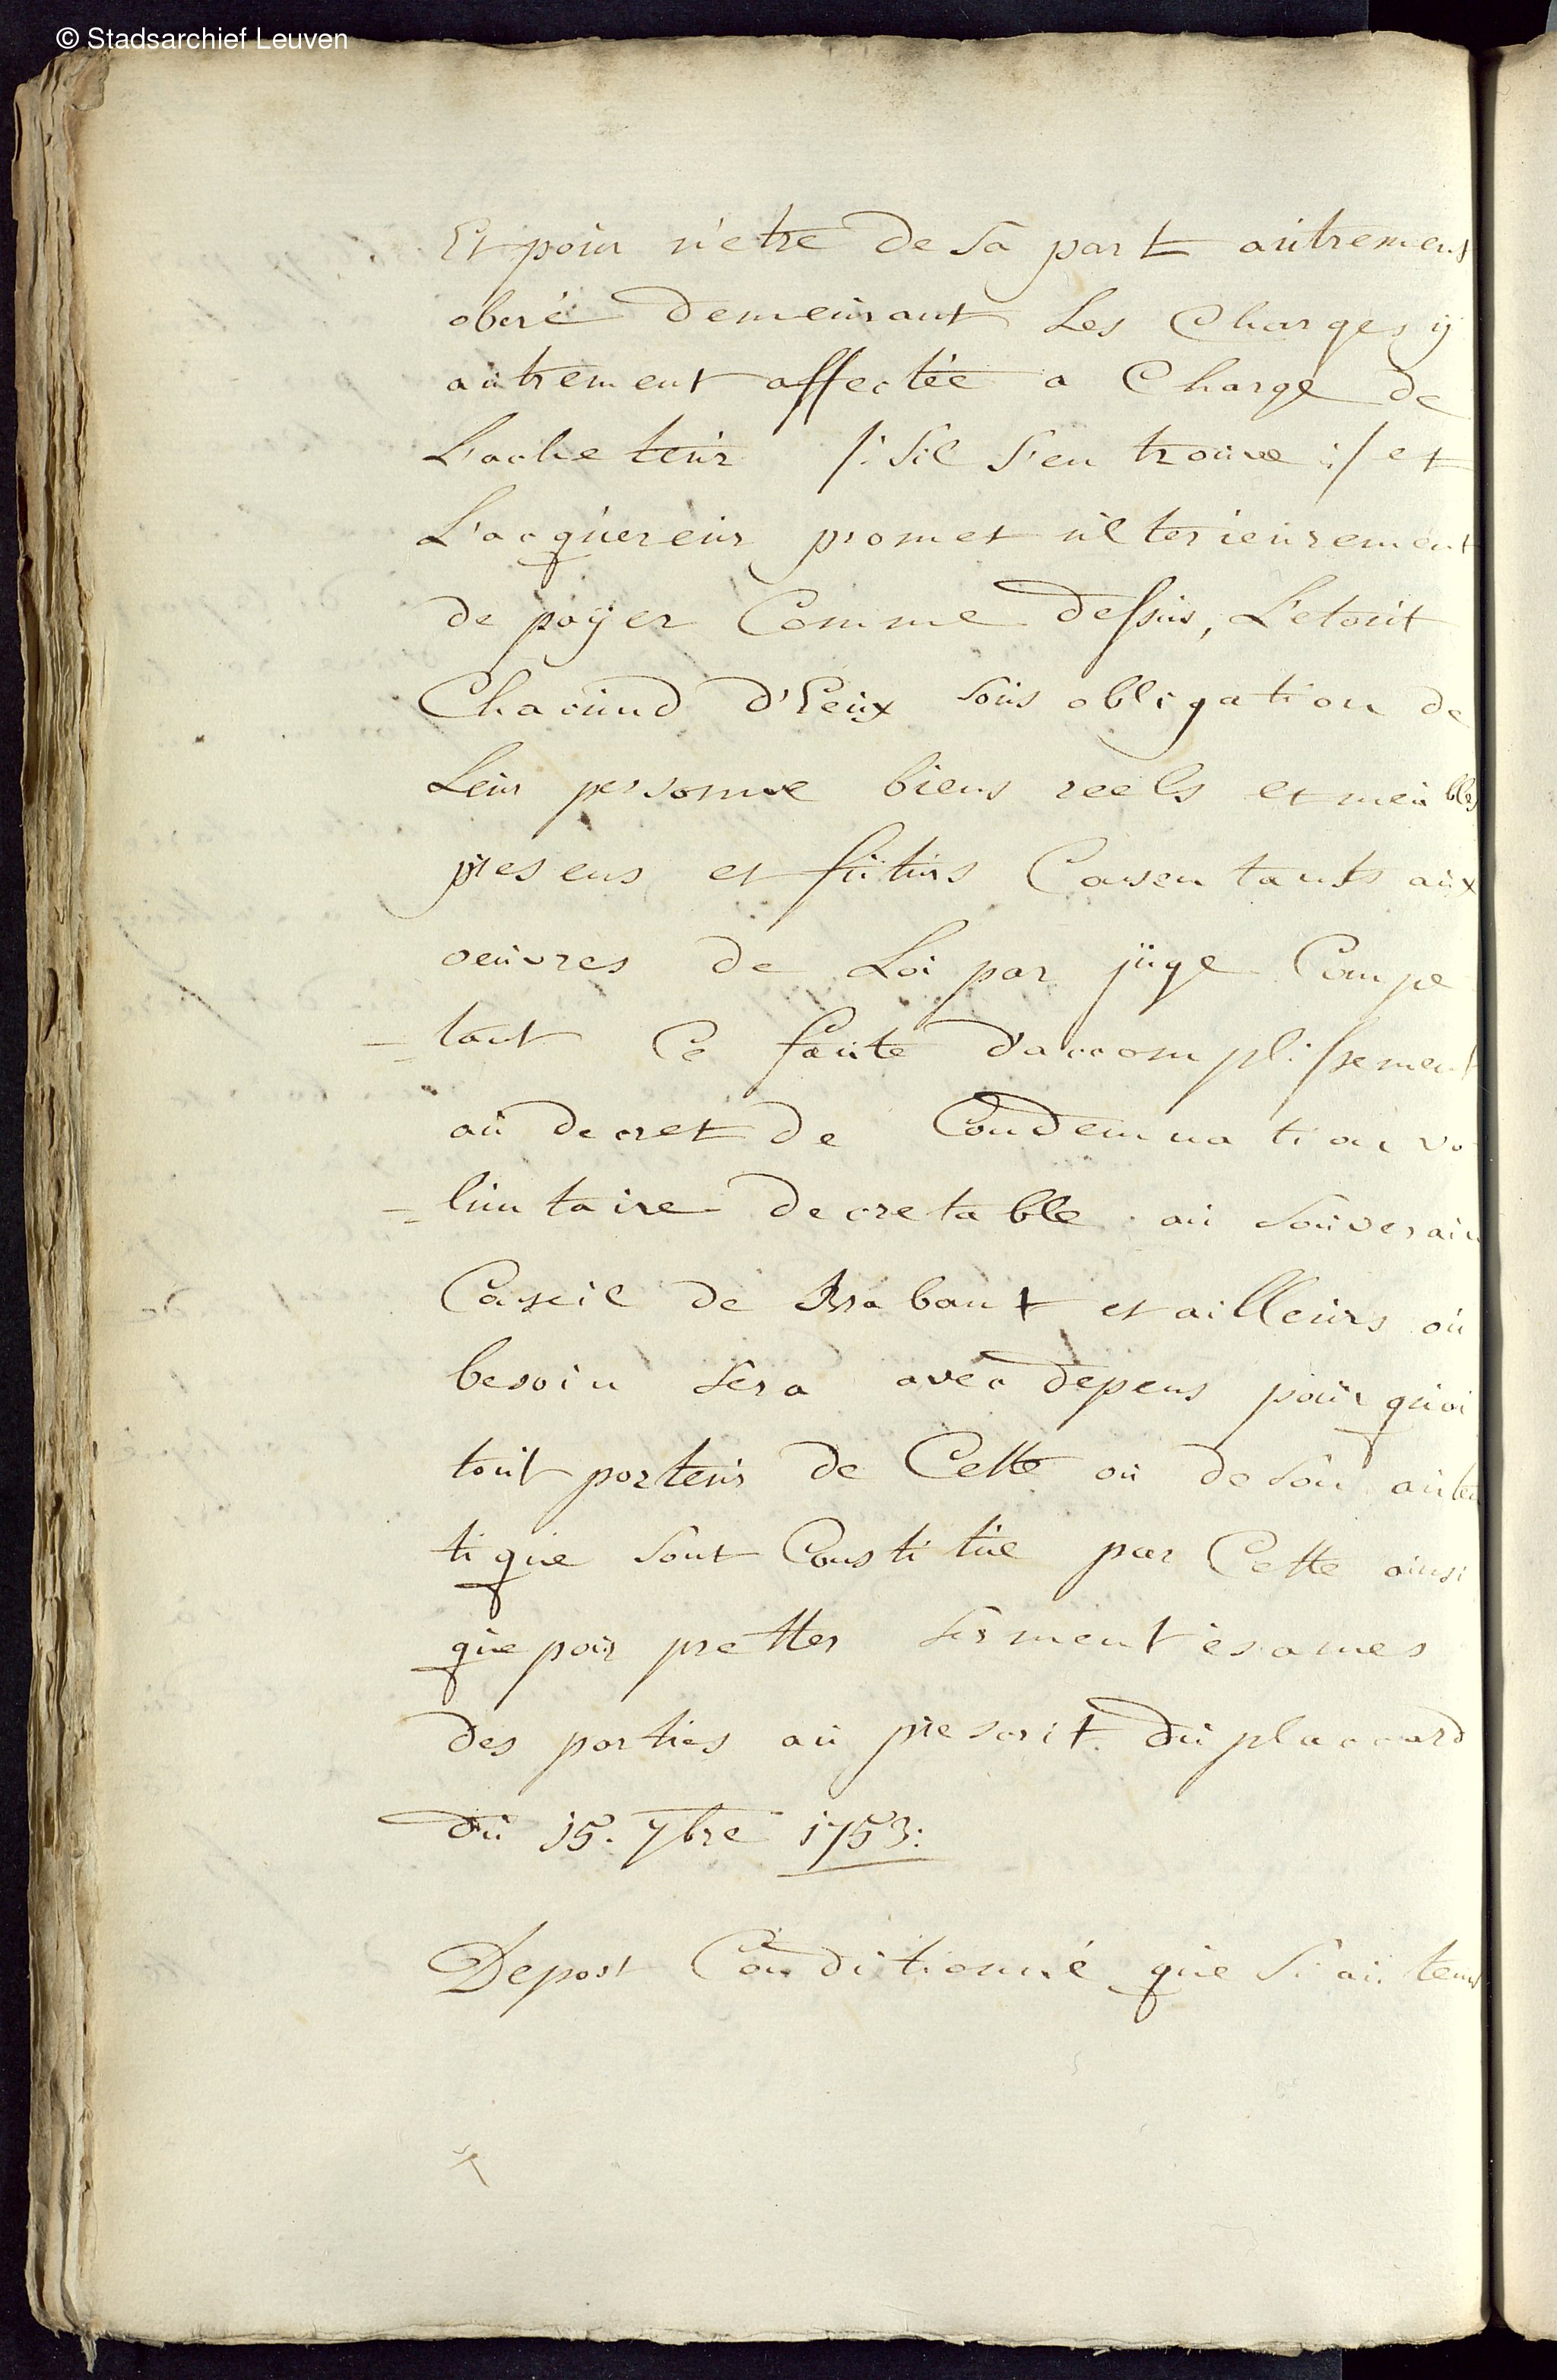 © Stadsarchief Leuven
Et pour n'etre de sa part autrement
oberé demeurant les Charges y
autrement affectée a Charge de
L'acheteur /: sil s'en trouve :/ et
L'acquereur promet ulterieurement
de payer Comme dessus, Le tout
Chacund d'Eeux sous obligation de
Leur personne biens reels et meubles
presens et futurs Consentants aux
oeuvres de Loi par juge Compe
= tant Ce faute d'accomplissement
au decret de Condemnation vo
= luntaire decretable au souverain
Conseil de Brabant et ailleurs ou
besoin sera avec depens pour quoi
tout porteur de Cette ou de son auten
tique sont Constitue par Cette ainsi
que pour pretter serment es ames
des parties au prescrit du placcard
du 15. 7bre 1753:
Depost Conditionné que si au tems